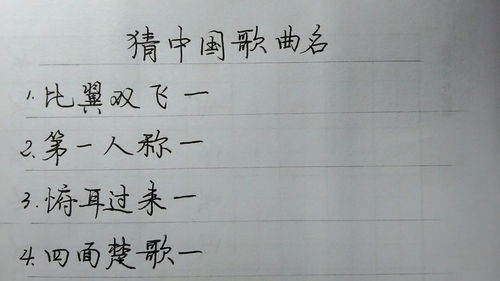 猜中国歌曲名
1.比翼双飞一
2.第一人称一
3.俯耳过来一
4.四面楚歌一